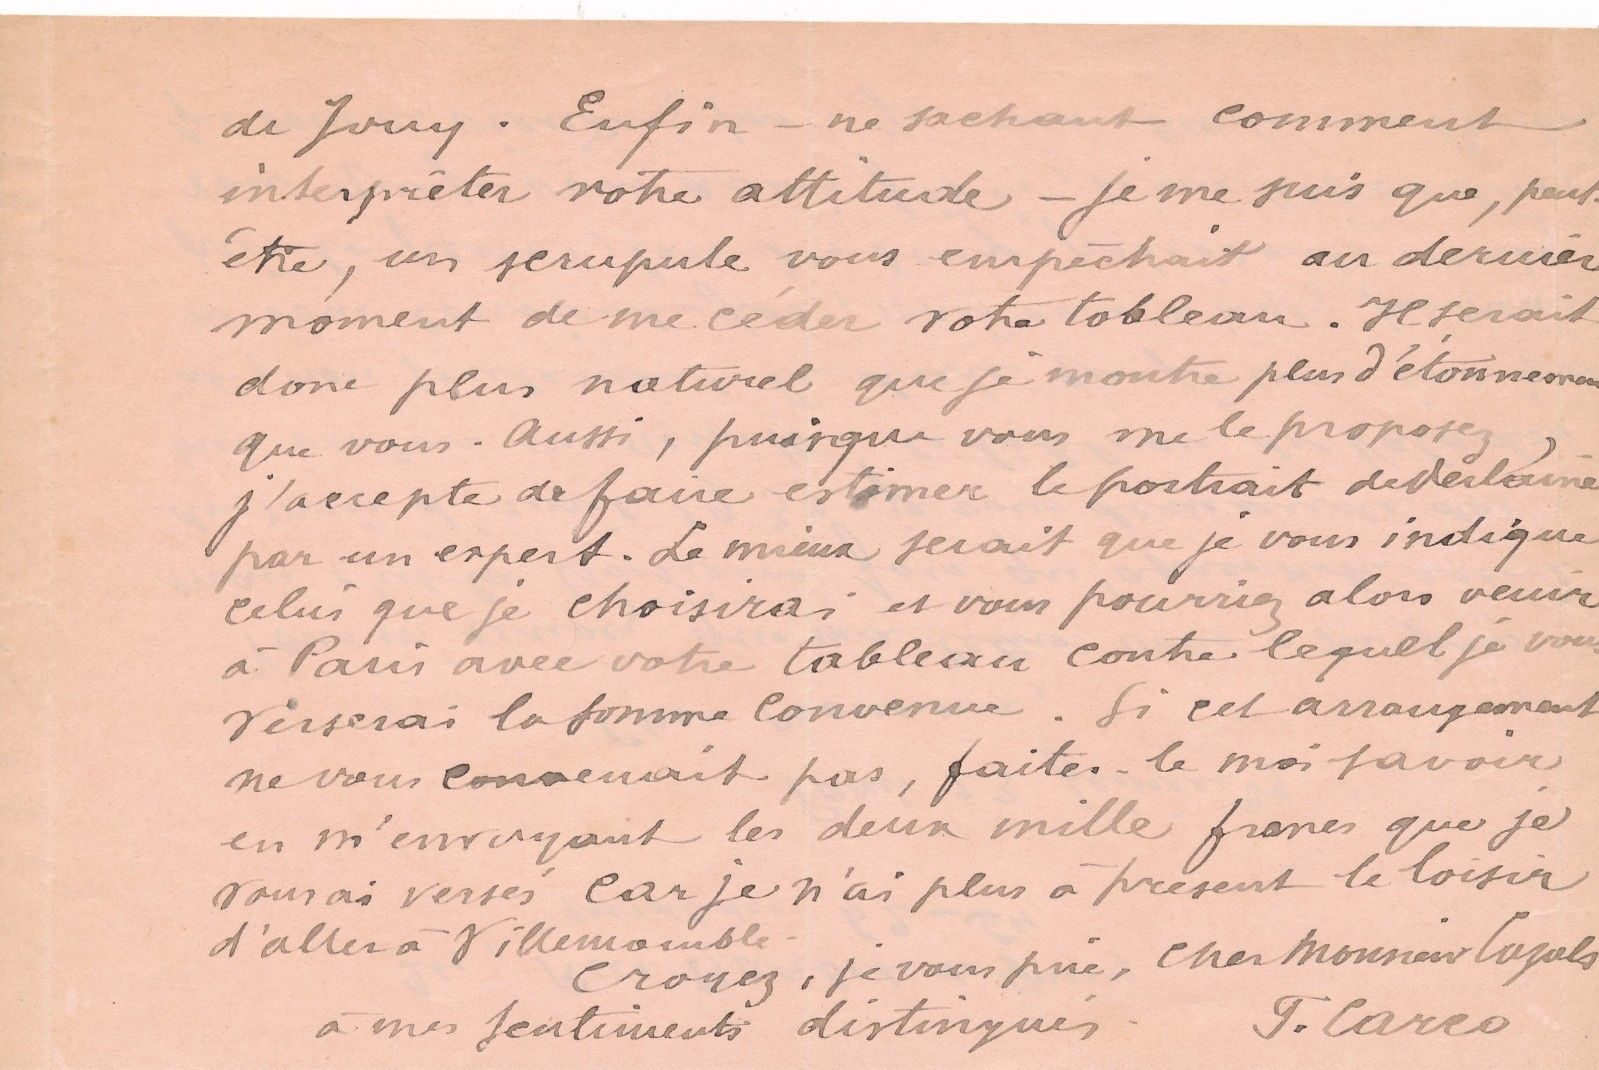 de Jouy. Enfin – ne sachant comment
interprêter votre attitude – je me suis que, peut-
être, un scrupule vous empêchait au dernier
moment de me céder votre tableau. Il serait
donc plus naturel que je montre plus d'étonnement
que vous. Aussi, puisque vous me le proposez,
j'accepte de faire estimer le portrait de Verlaine
par un expert. Le mieux serait que je vous indique
celui que je choisirai et vous pourriez alors venir
à Paris avec votre tableau contre lequel je vous
verserai la somme convenue. Si cet arrangement
ne vous convenait pas, faites-le moi savoir
en m'envoyant les deux mille francs que je
vous ai versés car je n'ai plus à présent le loisir
d'aller à Villemomble.
Croyez, je vous prie, cher Monsieur Cazals
à mes sentiments distingués.
F. Carco